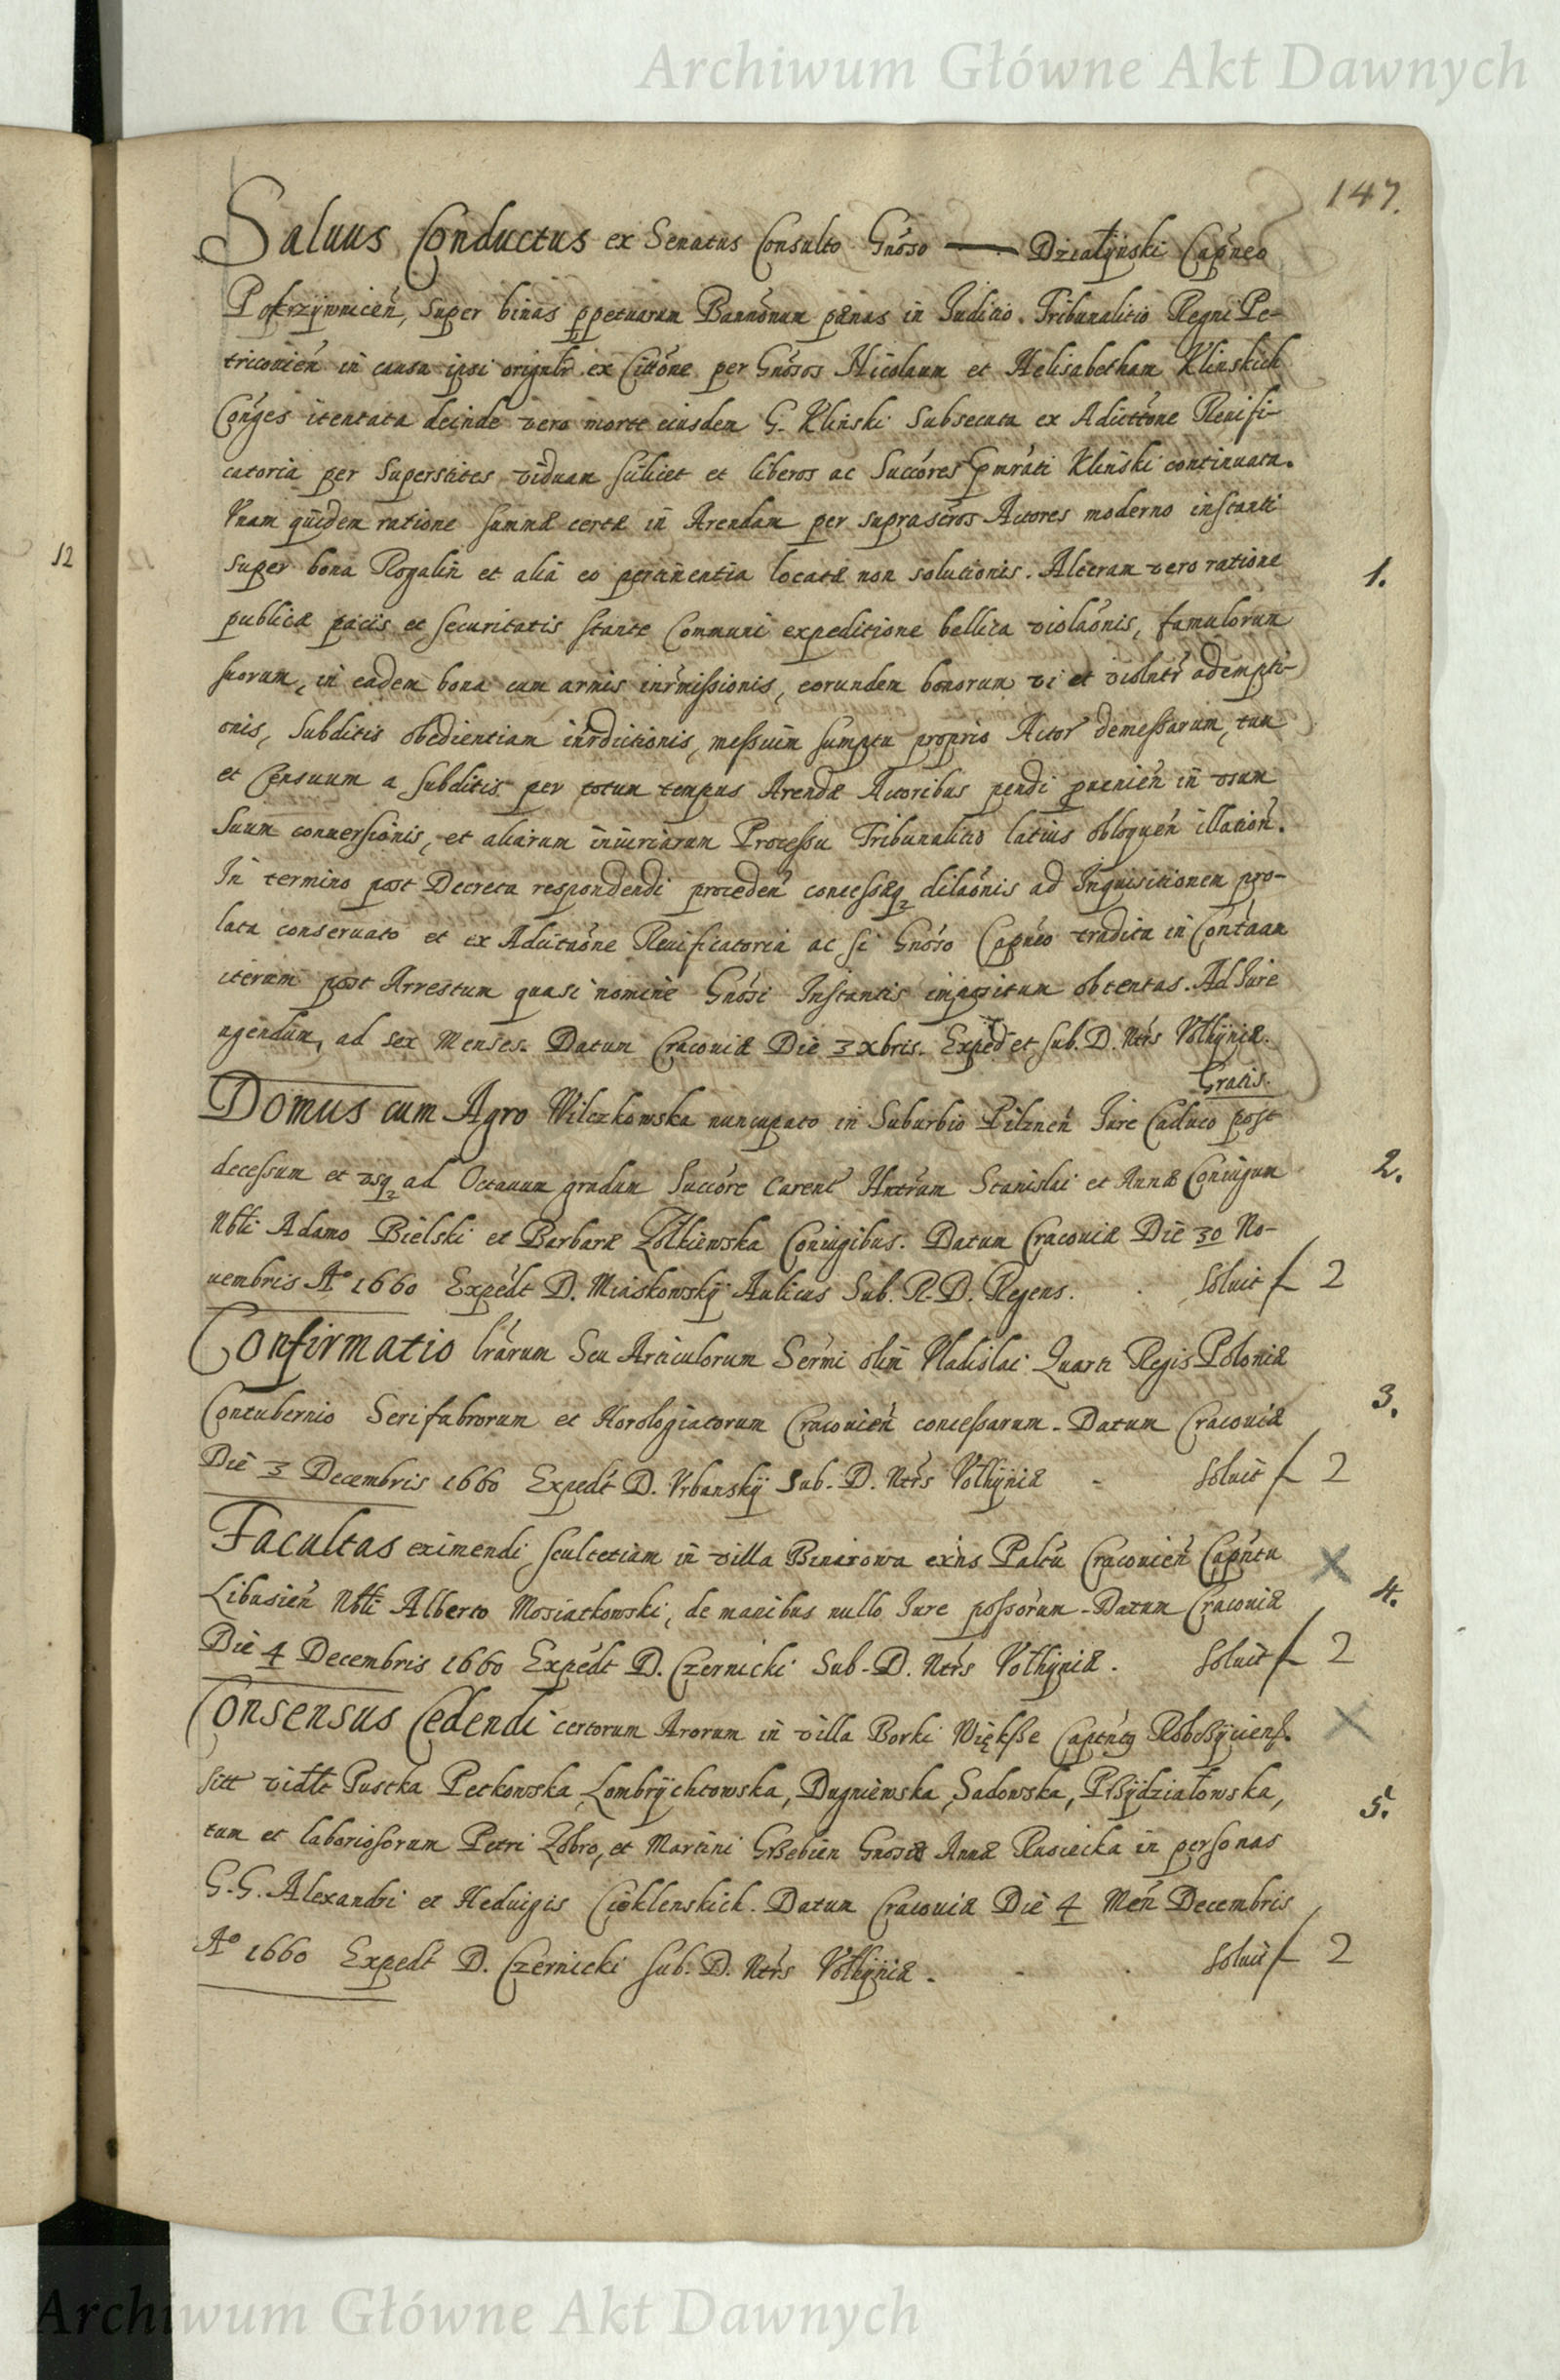 Archiwum Główne Akt Dawnych
147.
Saluus Conductus ex Senatus Consulto Gnoso — Działyński Capneo
Pokrzywnicen, super binas ppetuarum Bannonum pænas in Juditio Tribunalitio Regni Pe-
triconien in causa ipsi orignlr ex Cittone per Gnosos Nicolaum et Helisabetham Klinskich
Conges itentata deinde vero morte eiusdem G. Klinski Subsecuta ex Adcittone Reuifi-
catoria per Superstites viduam scilicet et liberos ac Succores Gmrati Klinski continuata.
Vnam quidem ratione summæ certæ in Arendam per suprascros Actores moderno instanti
super bona Rogalin et alia eo pertinentia locatæ non solutionis. Alteram vero ratione
1.
publicæ pacis et securitatis stante Communi expeditione bellica violaonis, famulorum
suorum, in eadem bona cum armis inrmissionis, eorundem bonorum vi et violntr adempti-
onis, Subditis obedientiam inrdictionis, messium sumptu proprio Actor demessarum, tum
et Censuum a subditis per totum tempus Arendæ Actoribus pendi puenien in vsum
Suum conuersionis, et aliarum iniuriarum Processu Tribunalitio latius obloquen illation.
In termino post Decreta respondendi proceden concessæq dilaonis ad Inquisitionem pro-
lata conseruato et ex Adcitaone Reuificatoria ac si Gnoso Capneo tradita in Contaam
iterum post Arrestum quasi nomine Gnosi Instantis impositum obtentas. Ad Jure
agendum, ad sex Menses. Datum Cracouiæ Die 3 xbris. Exped et sub. D. Ntrs Volhyniæ.
Gratis.
Domus cum Agro Wilczkowska nuncupato in Suburbio Pilznen Jure Caduco post
decessum et vsq ad Octauum gradum Succore Carent Hntrum Stanislai et Annæ Coniugum
2.
Nbli Adamo Bielski et Barbaræ Zolkiewska Coniugibus. Datum Cracouiæ Die 30 No-
uembris Aº 1660 Expedt D. Miaskowsky Aulicus Sub. R. D. Regens. Soluit f 2
Confirmatio lrarum Seu Articulorum Sermi olim Vladislai Quarti Regis Poloniæ
Contubernio Serifabrorum et Horologiatorum Cracouien concessarum. Datum Cracouiæ
3.
Die 3 Decembris 1660 Expedt D. Vrbansky Sub. D. Ntrs Volhyniæ - Soluit f 2
Facultas eximendi scultetiam in villa Binarowa exns Paltu Cracouien Capntu
Libusien Nbli Alberto Mosiatkowski, de manibus nullo Jure possorum. Datum Cracouiæ
4.
Die 4 Decembris 1660 Expedt D. Czernicki Sub. D. Ntrs Volhyniæ. Soluit f 2
Consensus Cedendi certorum Arorum in villa Borki Większe Robczyciens.
sitt vidlt Pustka Petkowska, Lombrychtowska, Dugniewska, Sadowska, Przydziałowska,
5.
tum et laboriosorum Petri Zobro, et Martini Grzebien Gnosæ Annæ Rusiecka in personas
G. G. Alexandri et Heduigis Cieklenskich. Datum Cracouiæ Die 4 Men Decembris
Aº 1660 Expedt D. Czernicki Sub. D. Ntrs Volhyniæ. Soluit f 2
12
Archiwum Główne Akt Dawnych